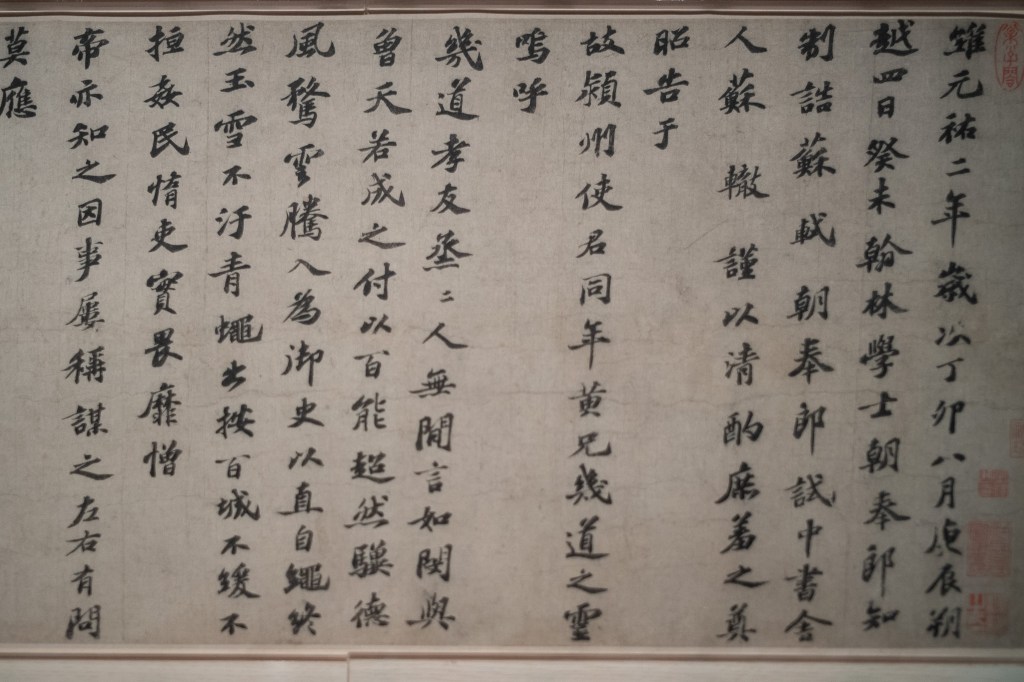 維元祐二年歲次丁卯八月庚辰朔
越四日癸未翰林學士朝奉郎知
制誥蘇軾朝奉郎試中書舍
人蘇轍謹以清酌庶羞之奠
昭告于
故潁州使君同年黄兄幾道之靈
嗚呼
幾道孝友烝〻人無閒言如閔與
曾天若成之付以百能超然驥德
風騖雲騰入為御史以直自繩終
然玉雪不汙青蠅出按百城不緩不
搄姦民惰吏實畏靡憎
帝亦知之因事屢稱謀之左右有問
莫應